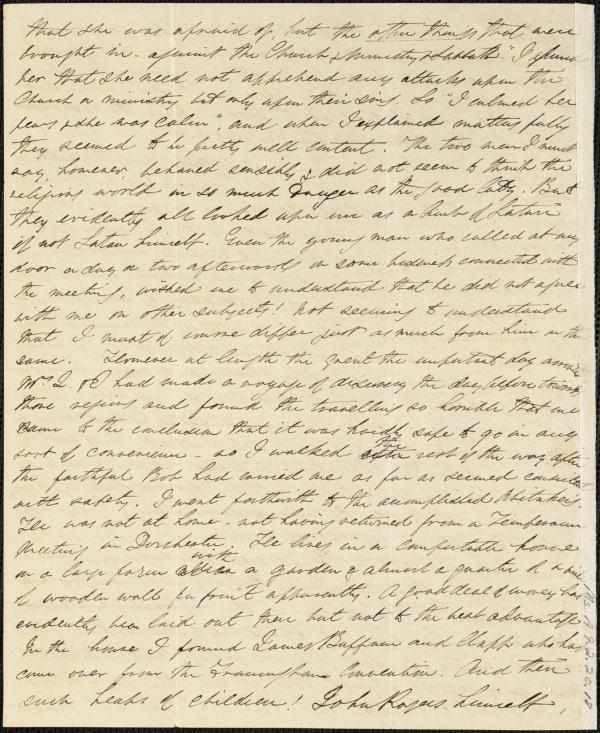 that she was afraid of, but the other things that were
brought in against the Church & Ministry & Sabbath." I assured
her that she need not apprehend any attacks upon the
Church or ministry but only upon their sins. So "I calmed her
fears & she was calm", and when I explained matters fully
they seemed to be pretty well content. The two men I must
say, however, behaved sensibly & did not seem to think the
religious world in so much danger as the good lady. But
they evidently all looked upon me as a limb of Satan
if not Satan himself. Even the young man who called at my
door a day or two afterwards on some business connected with
the meeting, wished me to understand that he did not agree
with me on other subjects! Not seeming to understand
that I must of course differ just as much from him on the
same. However at length the great the important day arrived
Mrs Q. & I had made a voyage of discovery the day before towards
those regions and found the travelling so horrible that we
came to the conclusion that it was hardly safe to go in any
sort of convenience - so I walked the rest of the way after
the faithful Bob had carried me as far as seemed consistent
with safety. I went forthwith to the accomplished Whitaker's.
He was not at home - not having returned from a Temperance
Meeting in Dorchester. He lives in a comfortable house
on a large farm with a garden & almost a quarter of a mile
of wooden wall for fruit apparently. A good deal of money has
evidently been laid out there but not to the best advantage
In the house I found James Buffum and Clapp who had
come over from the Framingham Convention. And then
such heaps of children! John Rogers himself,
Ms. A.9.2.20.18